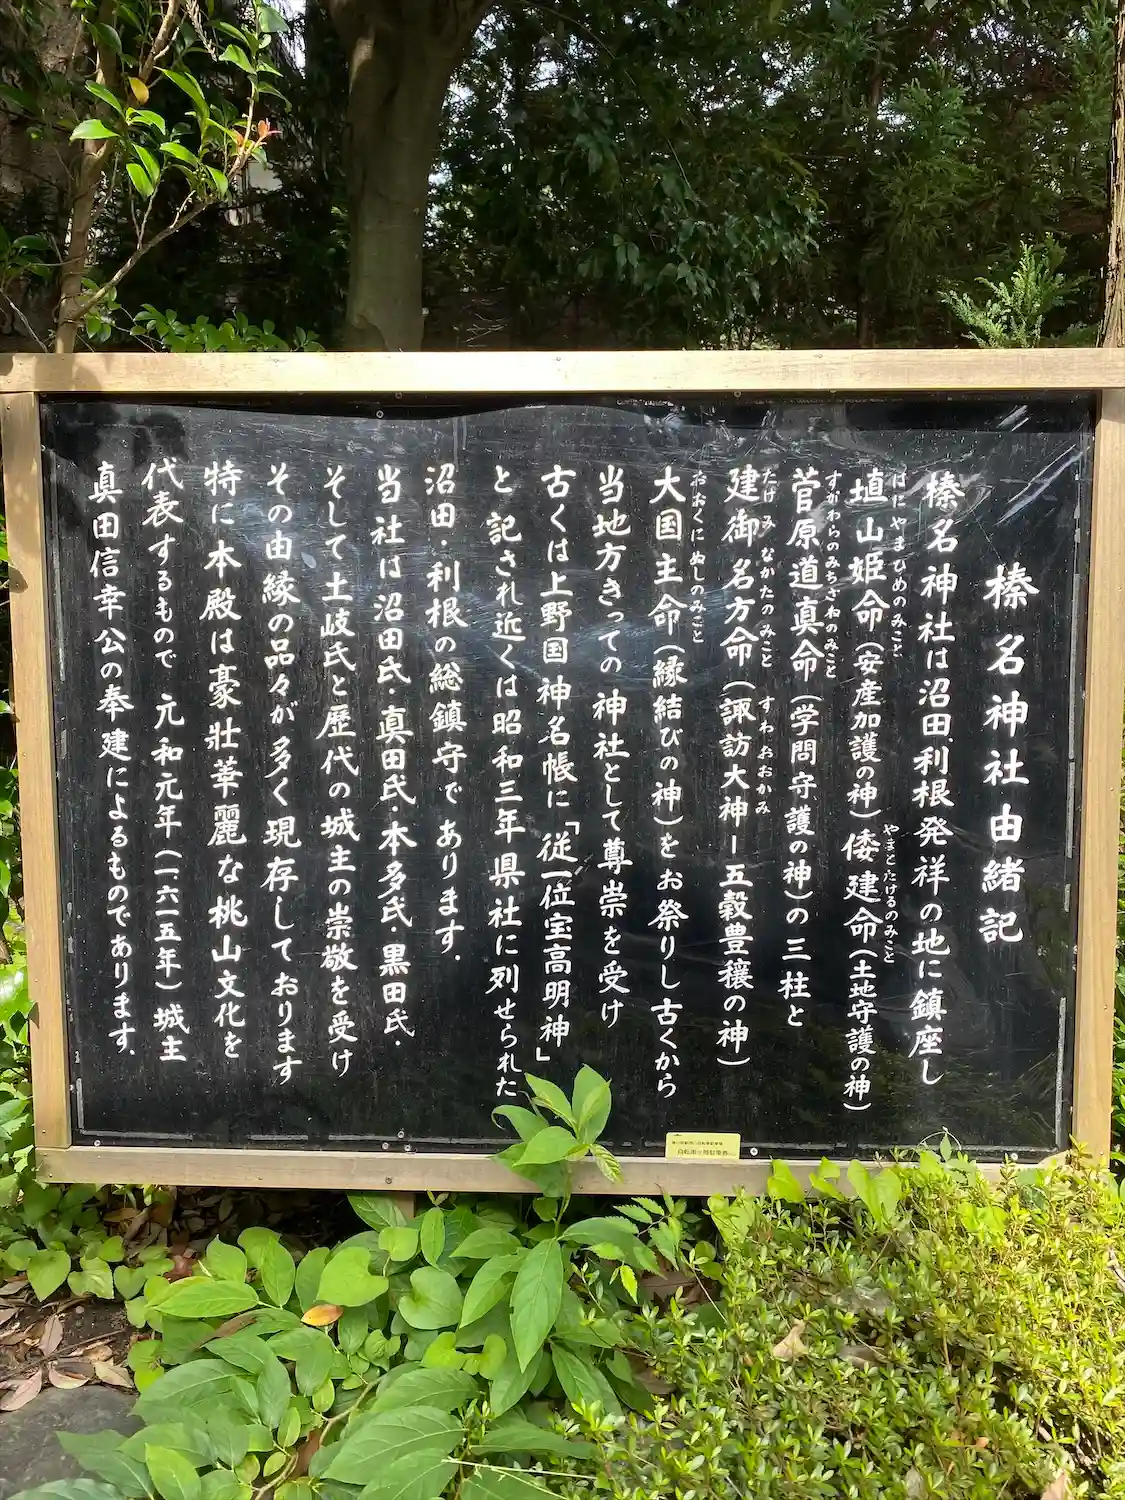 榛名神社由緒記
榛名神社は沼田.利根発祥の地に鎮座し
はにやまひめのみこと やまとたけるのみこと
埴山姫命(安産加護の神)倭建命(土地守護の神)
すがわらのみちざねのみこと
菅原道真命(学問守護の神)の三柱と
たけみなかたのみこと すわおおかみ
建御名方命(諏訪大神ー五穀豊穣の神)
おおくにぬしのみこと
大国主命(縁結びの神)をお祭りし古くから
当地方きっての神社として尊崇を受け
古くは上野国神名帳に「従一位宝高明神」
と記され近くは昭和三年県社に列せられた
沼田.利根の総鎮守であります.
当社は沼田氏.真田氏.本多氏.黒田氏.
そして土岐氏と歴代の城主の崇敬を受け
その由縁の品々が多く現存しております
特に本殿は豪壮華麗な桃山文化を
代表するもので元和元年(一六一五年)城主
真田信幸公の奉建によるものであります.